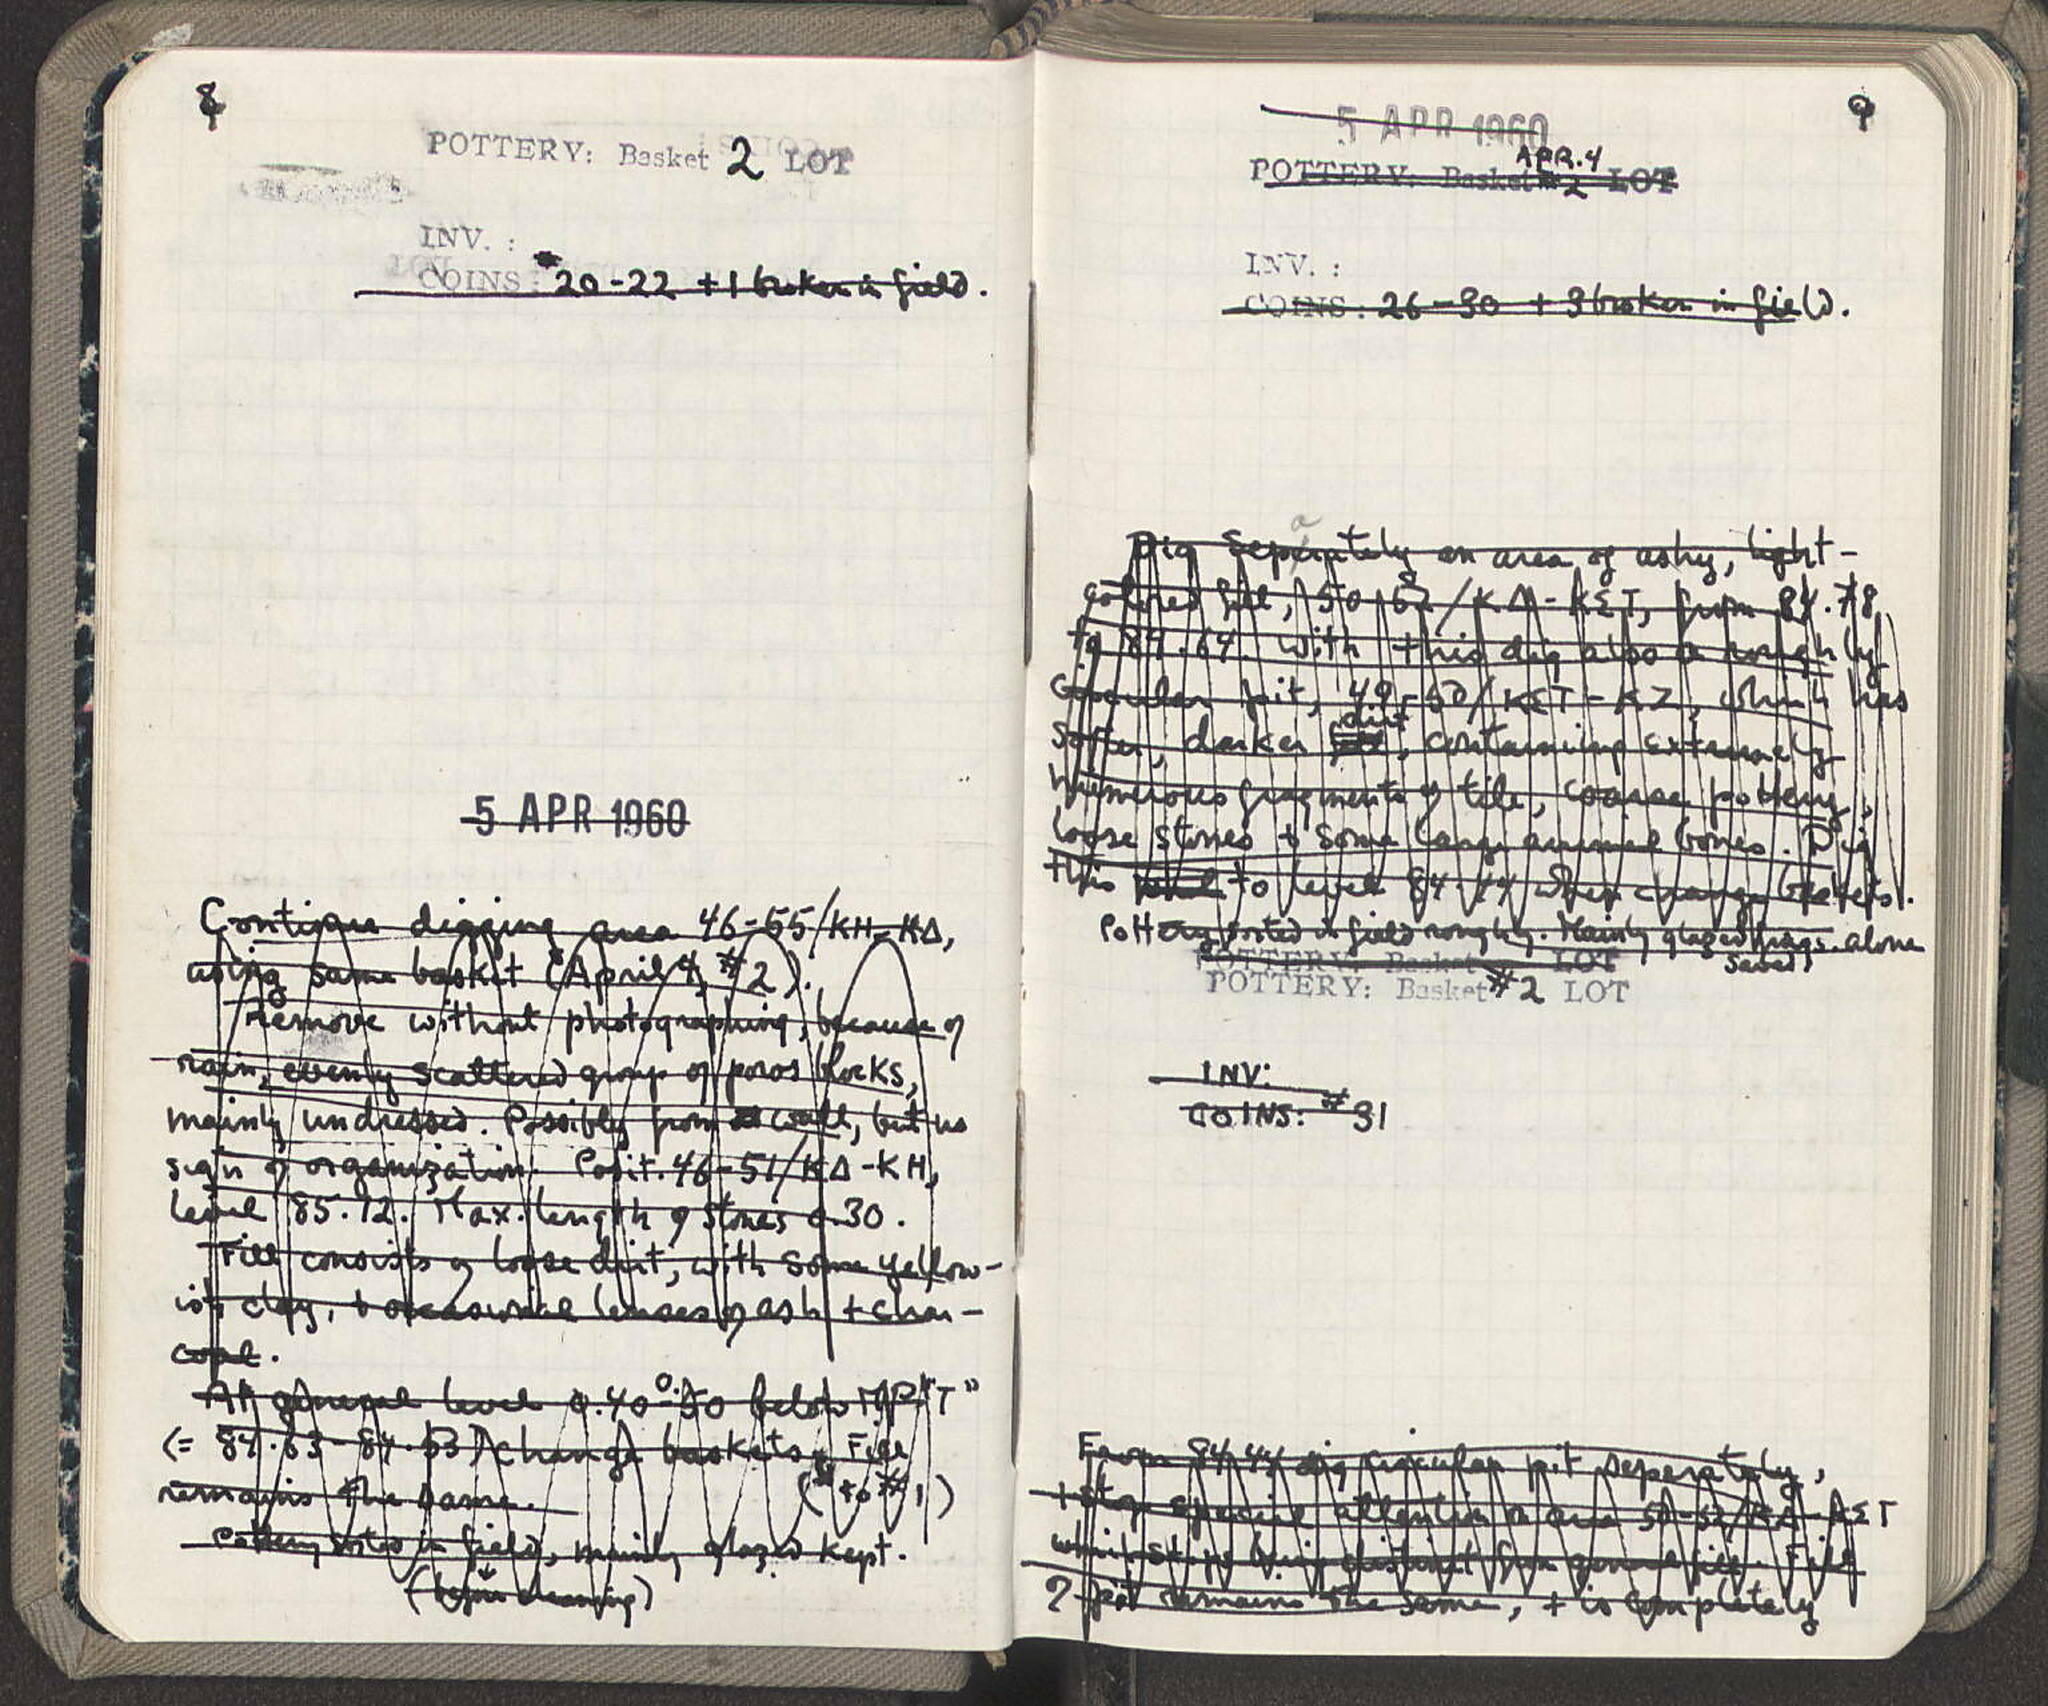 8
POTTERY: Basket 2 LOT
INV. :
COINS: #20-22 + 1 broken in field.
5 APR 1960
Continue digging area 46-55/KH-KΔ,
using same basket (April 4, #2).
Remove without photographing, because of
rain, evenly scattered group of poros blocks,
mainly undressed. Possibly from wall, but no
sign of organization. Posit. 46-51/KΔ-KH,
level 85.12. Max. length of stones 0.30.
Fill consists of loose dirt, with some yellow-
ish clay, + occasional lenses of ash + char-
coal.
At general level 0.40-0.50 below "T"
(= 84.63-84.53) change baskets. Fill
remains the same. (to #1)
Pottery sorted in field, mainly glazed kept.
(before cleaning)
9
5 APR 1960
APR. 4
POTTERY: Basket #2 LOT
INV. :
COINS: 26-30 + 3 broken in field.
a
Dig seperately an area of ashy, light-
colored fill, 50-52/KΔ-KΣT, from 84.78
to 84.64. With this dig also a roughly
circular pit, 49-50/KΣT-KZ, which has
softer, darker dirt, containing extremely
numerous fragments of tile, coarse pottery,
loose stones + some large animal bones. Dig
this to level 84.44 when change baskets.
Pottery sorted in field roughly. Mainly glazed frags. alone
saved
POTTERY: Basket LOT
POTTERY: Basket #2 LOT
INV:
COINS: #31
From 84.44 dig circular pit seperately,
+ stop special attention to area 50-52/KΔ-KΣT
which stops being distinct from general fill. Fill
of pit remains the same, + is completely